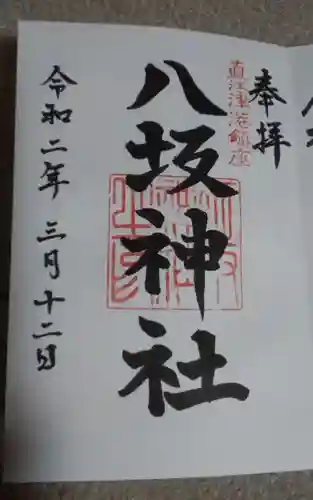 奉拝
直江津港鎮座
八坂神社
令和二年三月十二日